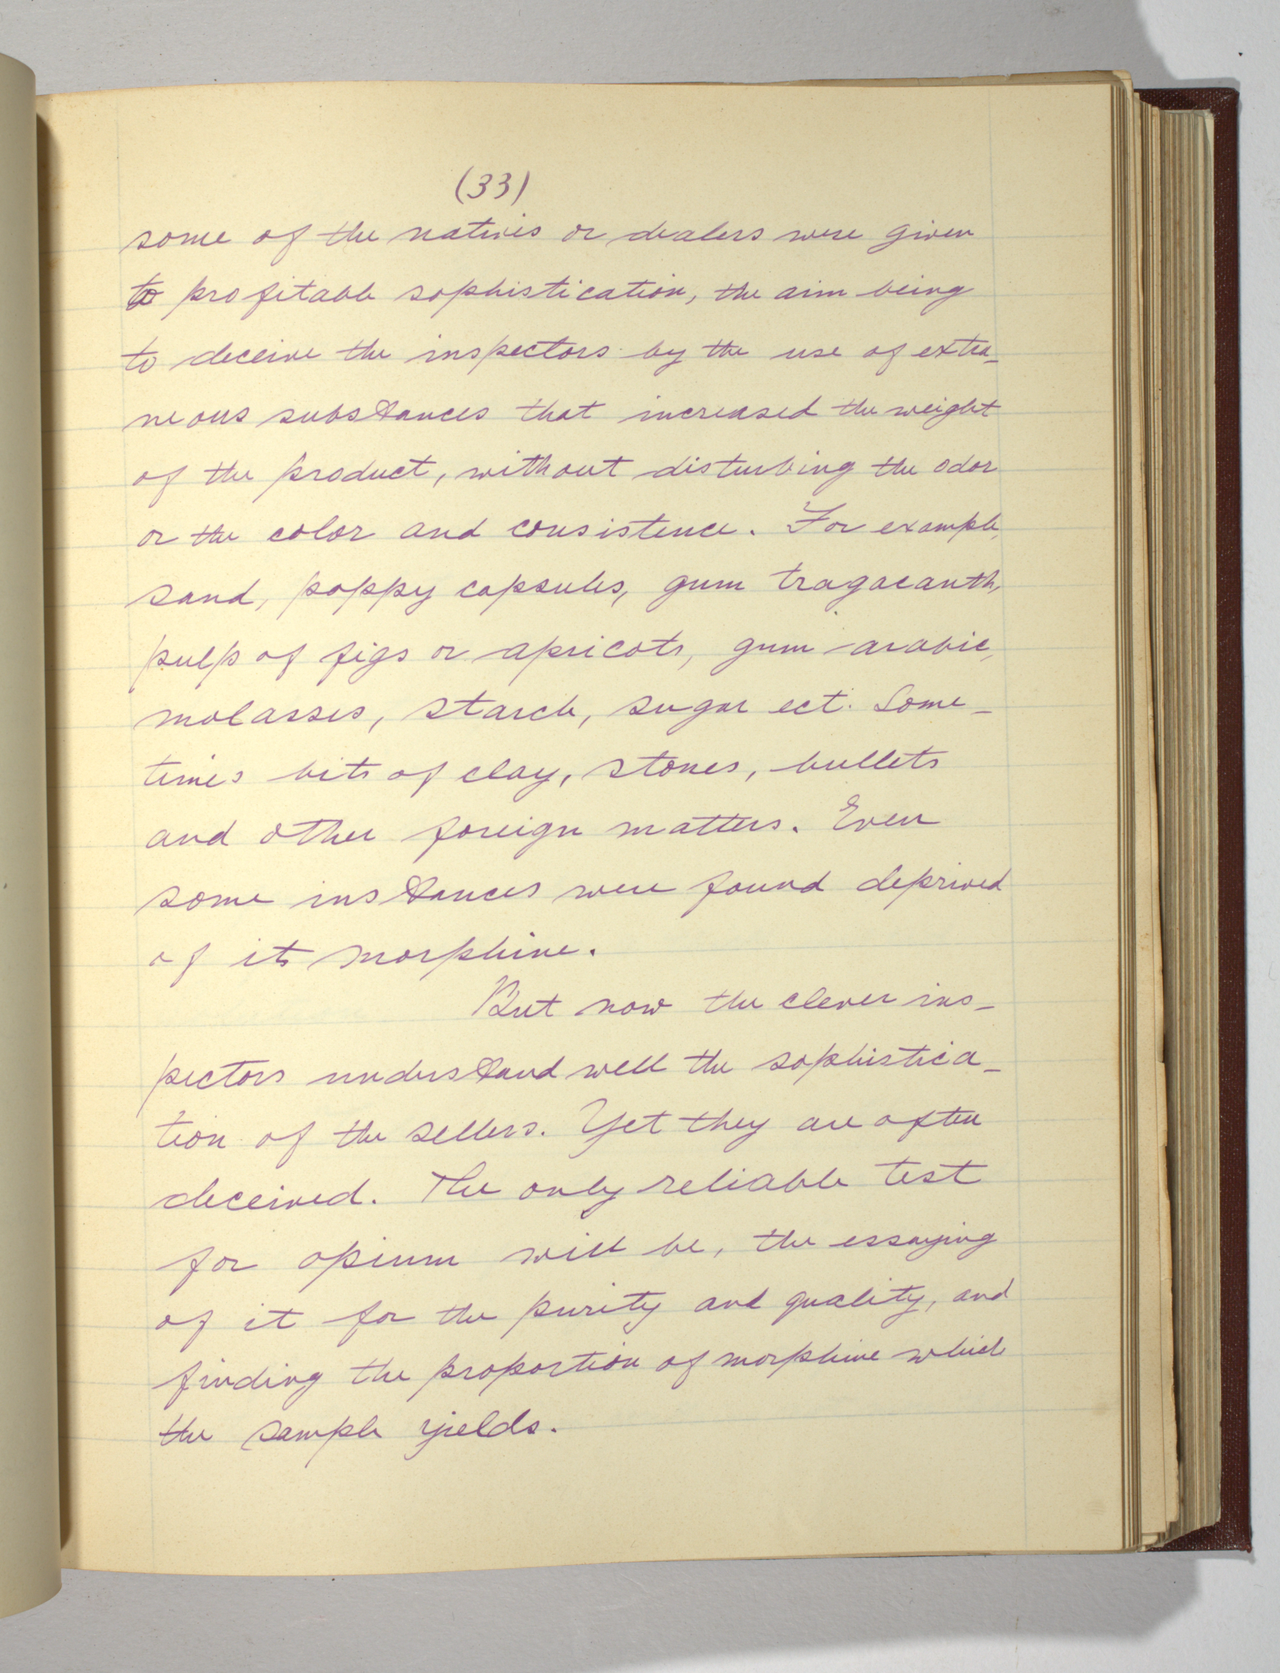 (33)
some of the natives or dealers were given
to profitable sophistication, the aim being
to deceive the inspectors by the use of extra-
neous substances that increased the weight
of the product, without disturbing the odor
or the color and consistence. For example,
sand, poppy capsules, gum tragacanth,
pulp of figs or apricots, gum arabic,
molasses, starch, sugar ect. Some-
times bits of clay, stones, bullets
and other foreign matters. Even
some instances were found deprived
of its morphine.
But now the clever ins-
pectors understand well the sophistica-
tion of the sellers. Yet they are often
deceived. The only reliable test
for opium will be, the essaying
of it for the purity and quality, and
finding the proportion of morphine which
the sample yields.